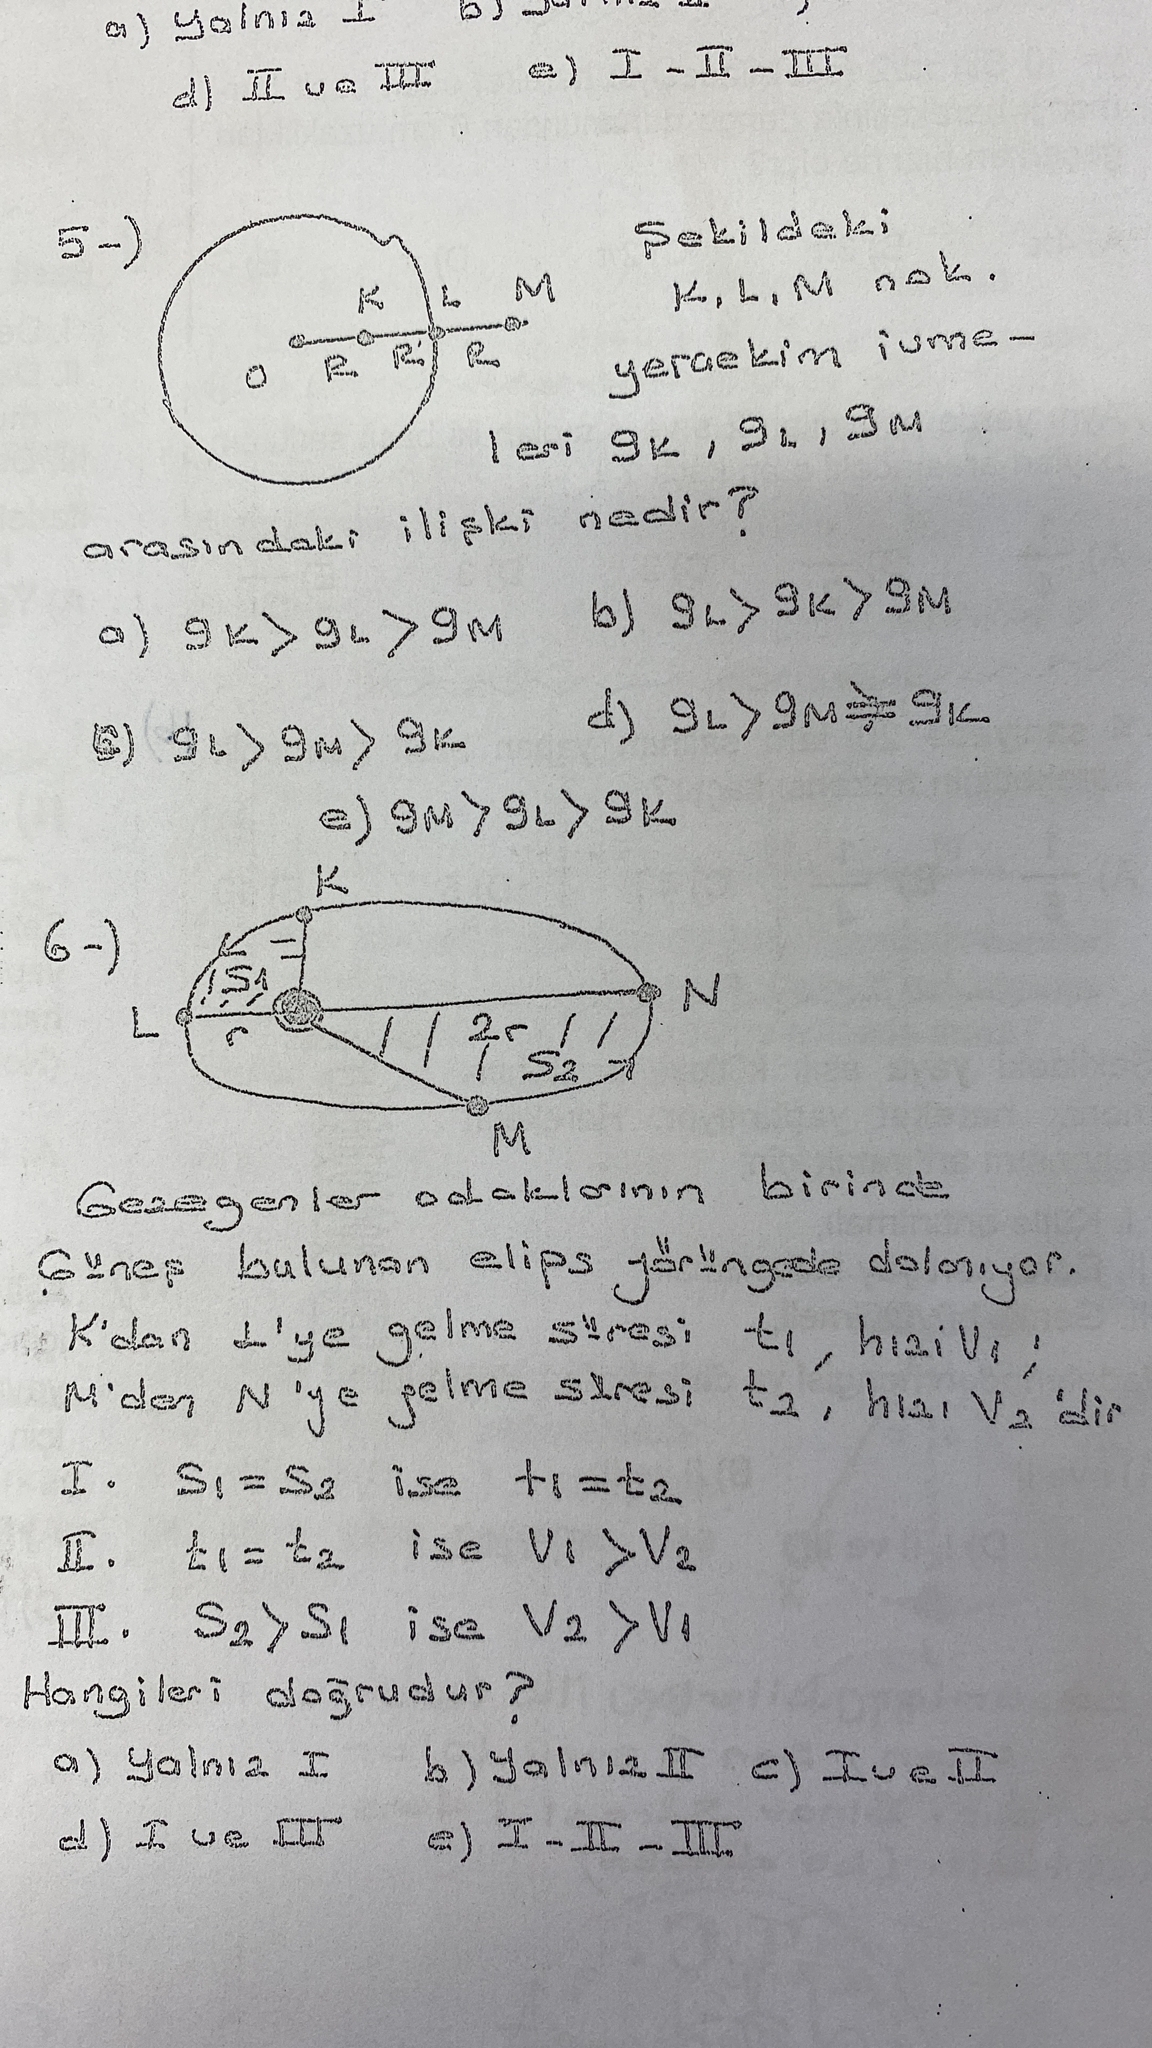 a) Yalnız I
d) II ve III e) I - II - III
5-) Şekildeki
K, L, M nok.
K L M
O R R R
yerçekim ivme-
leri gK, gL, gM
arasındaki ilişki nedir?
a) gK > gL > gM b) gL > gK > gM
c) gL > gM > gK d) gL > gM = gK
e) gM > gL > gK
6-)
K
S1
L r 2r N
S2
M
Gezegenler odaklarının birinde
Güneş bulunan elips yörüngede dolanıyor.
K'dan L'ye gelme süresi t1, hızı V1;
M'den N'ye gelme süresi t2, hızı V2'dir
I. S1 = S2 ise t1 = t2
II. t1 = t2 ise V1 > V2
III. S2 > S1 ise V2 > V1
Hangileri doğrudur?
a) Yalnız I b) Yalnız II c) I ve II
d) I ve III e) I - II - III